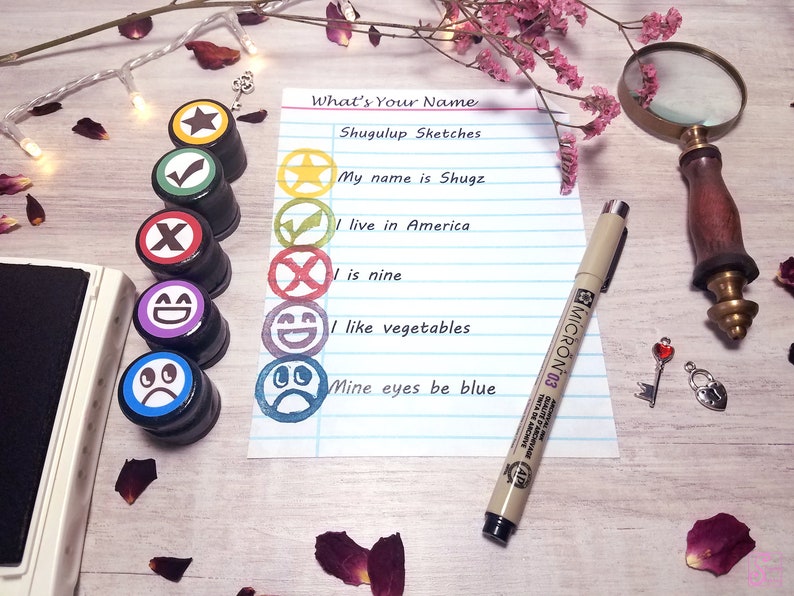 What's Your Name
Shugulup Sketches
My name is Shugz
I live in America
I is nine
I like vegetables
Mine eyes be blue
MICRON 03
ARCHIVAL INK
QUALITE D'ARCHIVAGE
TINTA DE ARCHIVE
AP